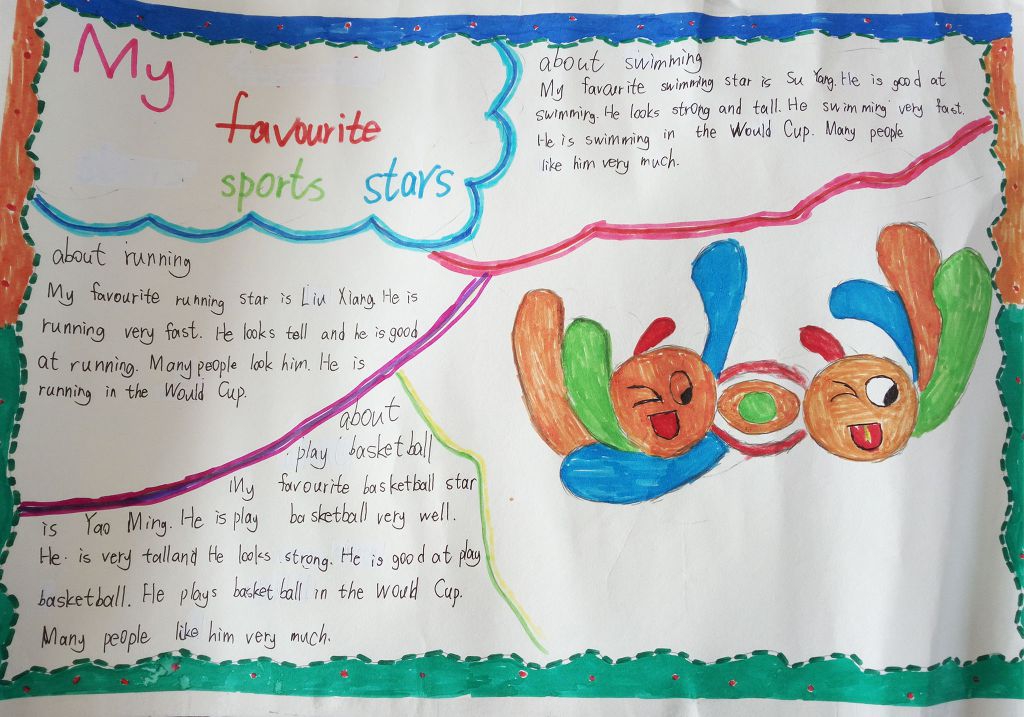 My
favourite
sports stars
about swimming
My favourite swimming star is Su Yang. He is good at
swimming. He looks strong and tall. He swimming very fast.
He is swimming in the Would Cup. Many people
like him very much.
about running
My favourite running star is Liu Xiang. He is
running very fast. He looks tell and he is good
at running. Many people look him. He is
running in the Would Cup.
about
play basketball
My favourite basketball star
is Yao Ming. He is play basketball very well.
He is very tall and He looks strong. He is good at play
basketball. He plays basketball in the Would Cup.
Many people like him very much.